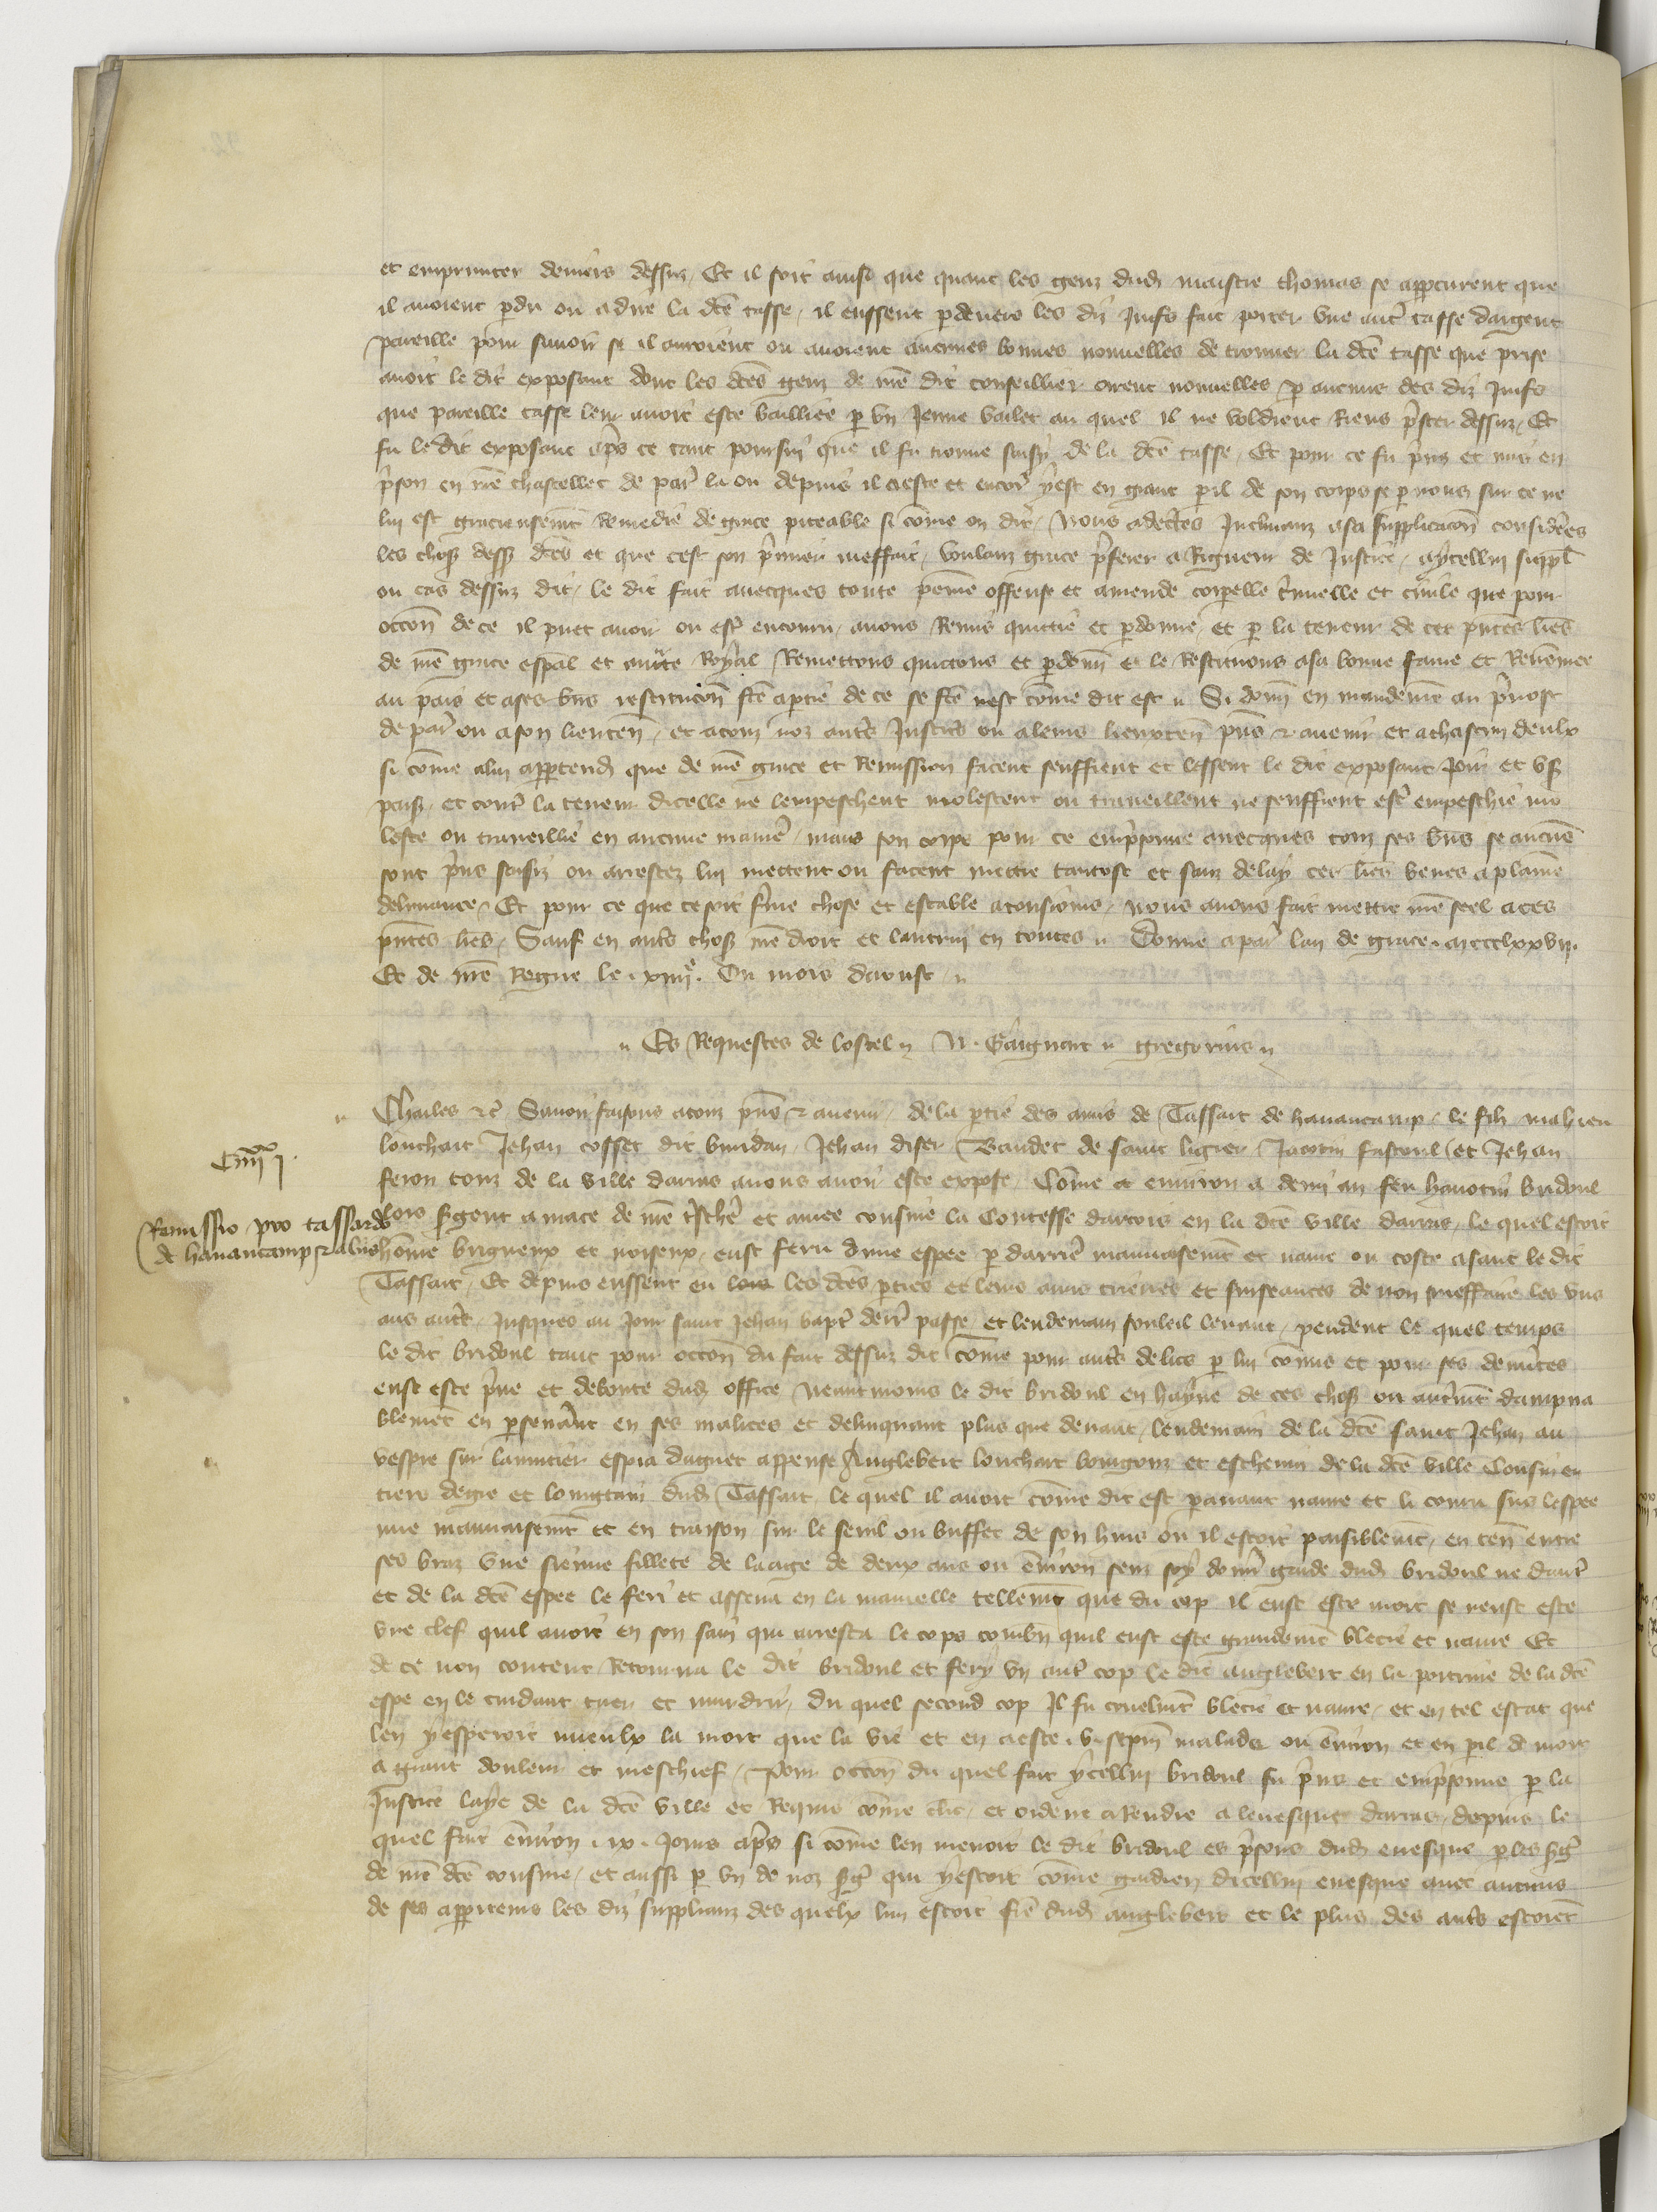 et emprunter deniers dessuz, Et il soit ainsi que quant les genz dud maistre thomas se apperceurent que
il avoient pdu ou adire la dce tasse, il eussent pdevers les diz Juifs fait porter une aut tasse dargent
pareille pour savoir se il auroient ou avoient aucunes bonnes nouvelles de trouver la dce tasse que prise
avoit le dit exposant dont les dces genz de nre dit conseillier orent nouvelles p aucuns des diz Juifs
que pareille tasse leur avoit este bailliee p un Jeune vallet au quel il ne voldrent Riens prster dessuz, Et
fu le dit exposant aps ce tant poursui que il fu trouve saisy de la dce tasse, Et pour ce fu prins et mis en
prson en nre chastellet de par la ou depuis il a este et encor y est en grant pil de son corps se p nous sur ce ne
lui est gracieusemt Remedie de grace piteable si come on dit, Nous adectes Inclinanz asa supplicacon considees
les choss dess dces et que cest son prmier meffait, voulanz grace prferer a Rigueur de Justice, aycellui suppl
ou cas dessuz dit, le dit fait avecques toute peine offense et amende corpelle crminelle et civile que pour
occon de ce il puet avoir ou est encouru, avons Remis quittie et pdonne, et p la teneur de ces pntes lres
de nre grace espal et auctte Royal Remettons quictons et pdonn et le Restituons asa bonne fame et Renomee
au pais et ases bns restitucon fce aptie de ce se fce nest come dit est Si donn en mandemt au prvost
de par ou a son lieuten, et a touz noz auts Justics ou a leurs lieuxten pns et avenir et a chascun deulx
si come alui apptendr que de nre grace et Remission facent seuffrent et lessent le dit exposant Joir et us
paiss, et cont la teneur dicelle ne lempeschent molestent ou traveillent ne seuffrent est empeschie mo
leste ou traveillie en aucune manie, mais son corps pour ce emprsonne avecques touz ses bns se aucuns
sont prns saisiz ou arrestez lui mettent ou facent mettre tantost et sanz delay ces lres veues a plaine
delivrance, Et pour ce que ce soit ferme chose et estable a tousiours, nous avons fait mettre nre seel a ces
pntes lres, Sauf en auts choss nre droit et lautrui en toutes. Donne a par lan de grace. mccclxxvii.
Et de nre Regne le . xiiii e. Ou mois daoust
Es Requestes de lostel N. Gaignart gregorius
Charles etc Savoir faisons a touz pns et avenir, de la ptie des amis de Tassart de hanancamp, le filz mahieu
louchart Jehan cosset dit buridan, Jehan diser Baudet de saint ligier Jacotin fastoul et Jehan
feron touz de la ville darras avons avoir este expose, Come a environ a demi an feu hanotin bridoul
CIIIIxx I.
lors sgent a mace de nre trschre et amee cousine la Contesse dartois en la dce ville darras, le quel estoit
Remissio pro tassardo
de hanancamp et aliis
home brigueux et noiseux, eust feru dune espee p darrier mauvaisemt et navre ou coste a sanc le dit
Tassart, Et depuis eussent eu les dces pties et leurs amis treves et suiseances de non meffaire les uns
aus auts, Jusques au Jour saint Jehan bapt derr passe et lendemain souleil levant, pendent le quel temps
le dit bridoul tant pour occon du fait dessuz dit come pour auts deliz p lui comis et pour ses demites
eust este prve et deboute dud office neantmoins le dit bridoul en hayne de ces choss ou autmt dampna
blemet en psevrant en ses malices et delinquant plus que devant, lendemain de la dce saint Jehan au
vespre sur lanuitier espia daguet appense Anglebert louchart bourgoiz et eschevin de la dce ville Cousin en
tiers degre et lomgtain dud Tassart, le quel il avoit come dit est paravant navre et li couru sus lespee
nue mauvaisemt et en traison sur le seuil ou buffet de son huis ou il estoit paisiblemt, en ten entre
ses braz une sienne fillete de laage de deux ans ou environ senz soy donn garde dud bridoul ne daut
et de la dce espee le feri et assena en la mamelle tellemt que du cop il eust este mort se neust este
une clef quil avoit en son sain qui arresta le cops combn quil eust este grandemt blecie et navre Et
de ce non content Retourna le dit bridoul et fery un aut cop le dit anglebert en la poitrine de la dce
espe en le cuidant tuer et murdrir, du quel second cop Il fu cruelmt blecie et navre, et en tel estat que
len y esperoit mieulx la mort que la vie et en a este . v. sepm malade ou environ et en pil de mort
a grant douleur et meschief, Pour occon du quel fait ycellui bridoul fu prns et emprsonne p la
Justice laye de la dce ville et Requis come clerc, et ordene a Rendre a levesque darras, depuis le
quel fait environ . ix . Jours aps si come len menoit le dit bridoul es prsons dud evesque p les sgs
de nre dce cousine, et aussi p un de noz sgs qui y estoit come gardien dicellui evesque avec aucuns
de ses appiteurs les diz supplianz des quelx lun estoit fre dud anglebert et le plus des auts estoiet